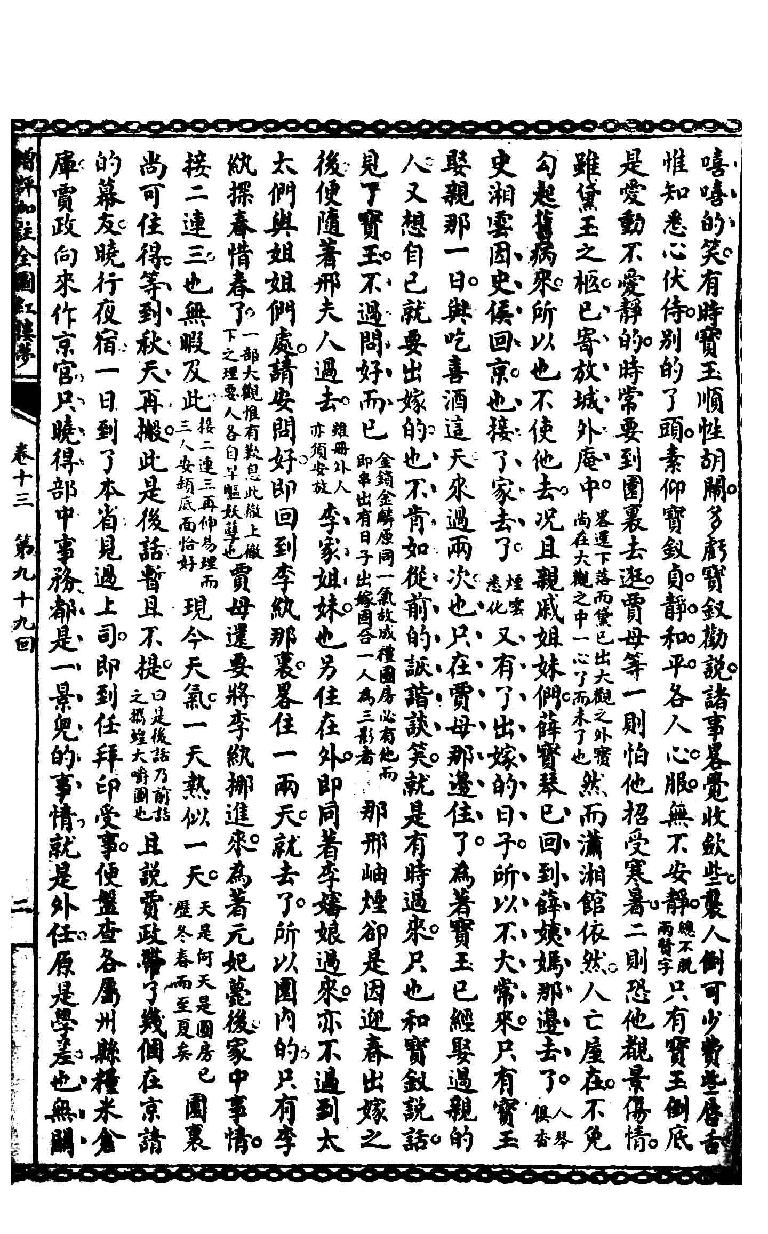 嘻嘻的笑有時寶玉順性胡鬧多虧寶釵勸說諸事畧覺收歛些襲人倒可少費些唇舌
惟知悉心伏侍別的了頭素仰寶釵貞靜和平各人心服無不安靜總不脫兩賢字只有寶玉倒底
是愛動不愛靜的時常要到園裏去逛賈母等一則怕他招受寒暑二則恐他覩景傷情
雖黛玉之柩已寄放城外庵中畧還下落而黛已出大觀之外寶尚在大觀之中一心了而未了也然而瀟湘館依然人亡屋在不免
勾起舊病來所以也不使他去况且親戚姐妹們薛寶琴已回到薛姨媽那邊去了人琴俱杳
史湘雲因史侯回京也接了家去了煙雲悉化又有了出嫁的日子所以不大常來只有寶玉
娶親那一日與吃喜酒這天來過兩次也只在賈母那邊住了為著寶玉已經娶過親的
人又想自己就要出嫁的也不肯如從前的詼諧談笑就是有時過來只也和寶釵說話
見了寶玉不過問好而已金鎖金麟原同一氣故成禮圓房必有他而即串出有日子出嫁因合一人為三影者那邢岫煙卻是因迎春出嫁之
後便隨著邢夫人過去雖冊外人亦須安放李家姐妹也另住在外即同著李嬸娘過來亦不過到太
太們與姐姐們處請安問好即回到李紈那裏畧住一兩天就去了所以園內的只有李
紈探春惜春了一部大觀惟有歎息此繳上繳下之理要人各自早驅妖孽也賈母還要將李紈挪進來為著元妃薨後家中事情
接二連三也無暇及此接二連三再仰易理而三人安頓底而恰好現今天氣一天熱似一天天是何天是圓房已歷冬春而至夏矣園裏
尚可住得等到秋天再搬此是後話暫且不提曰是後話乃前話之撂煌大嚼圖也且說賈政帶了幾個在京請
的幕友曉行夜宿一日到了本省見過上司即到任拜印受事便盤查各屬州縣糧米倉
庫賈政向來作京官只曉得部中事務都是一景兒的事情就是外任原是學差也無關
增評加註全圖紅樓夢 卷十三 第九十九回 二